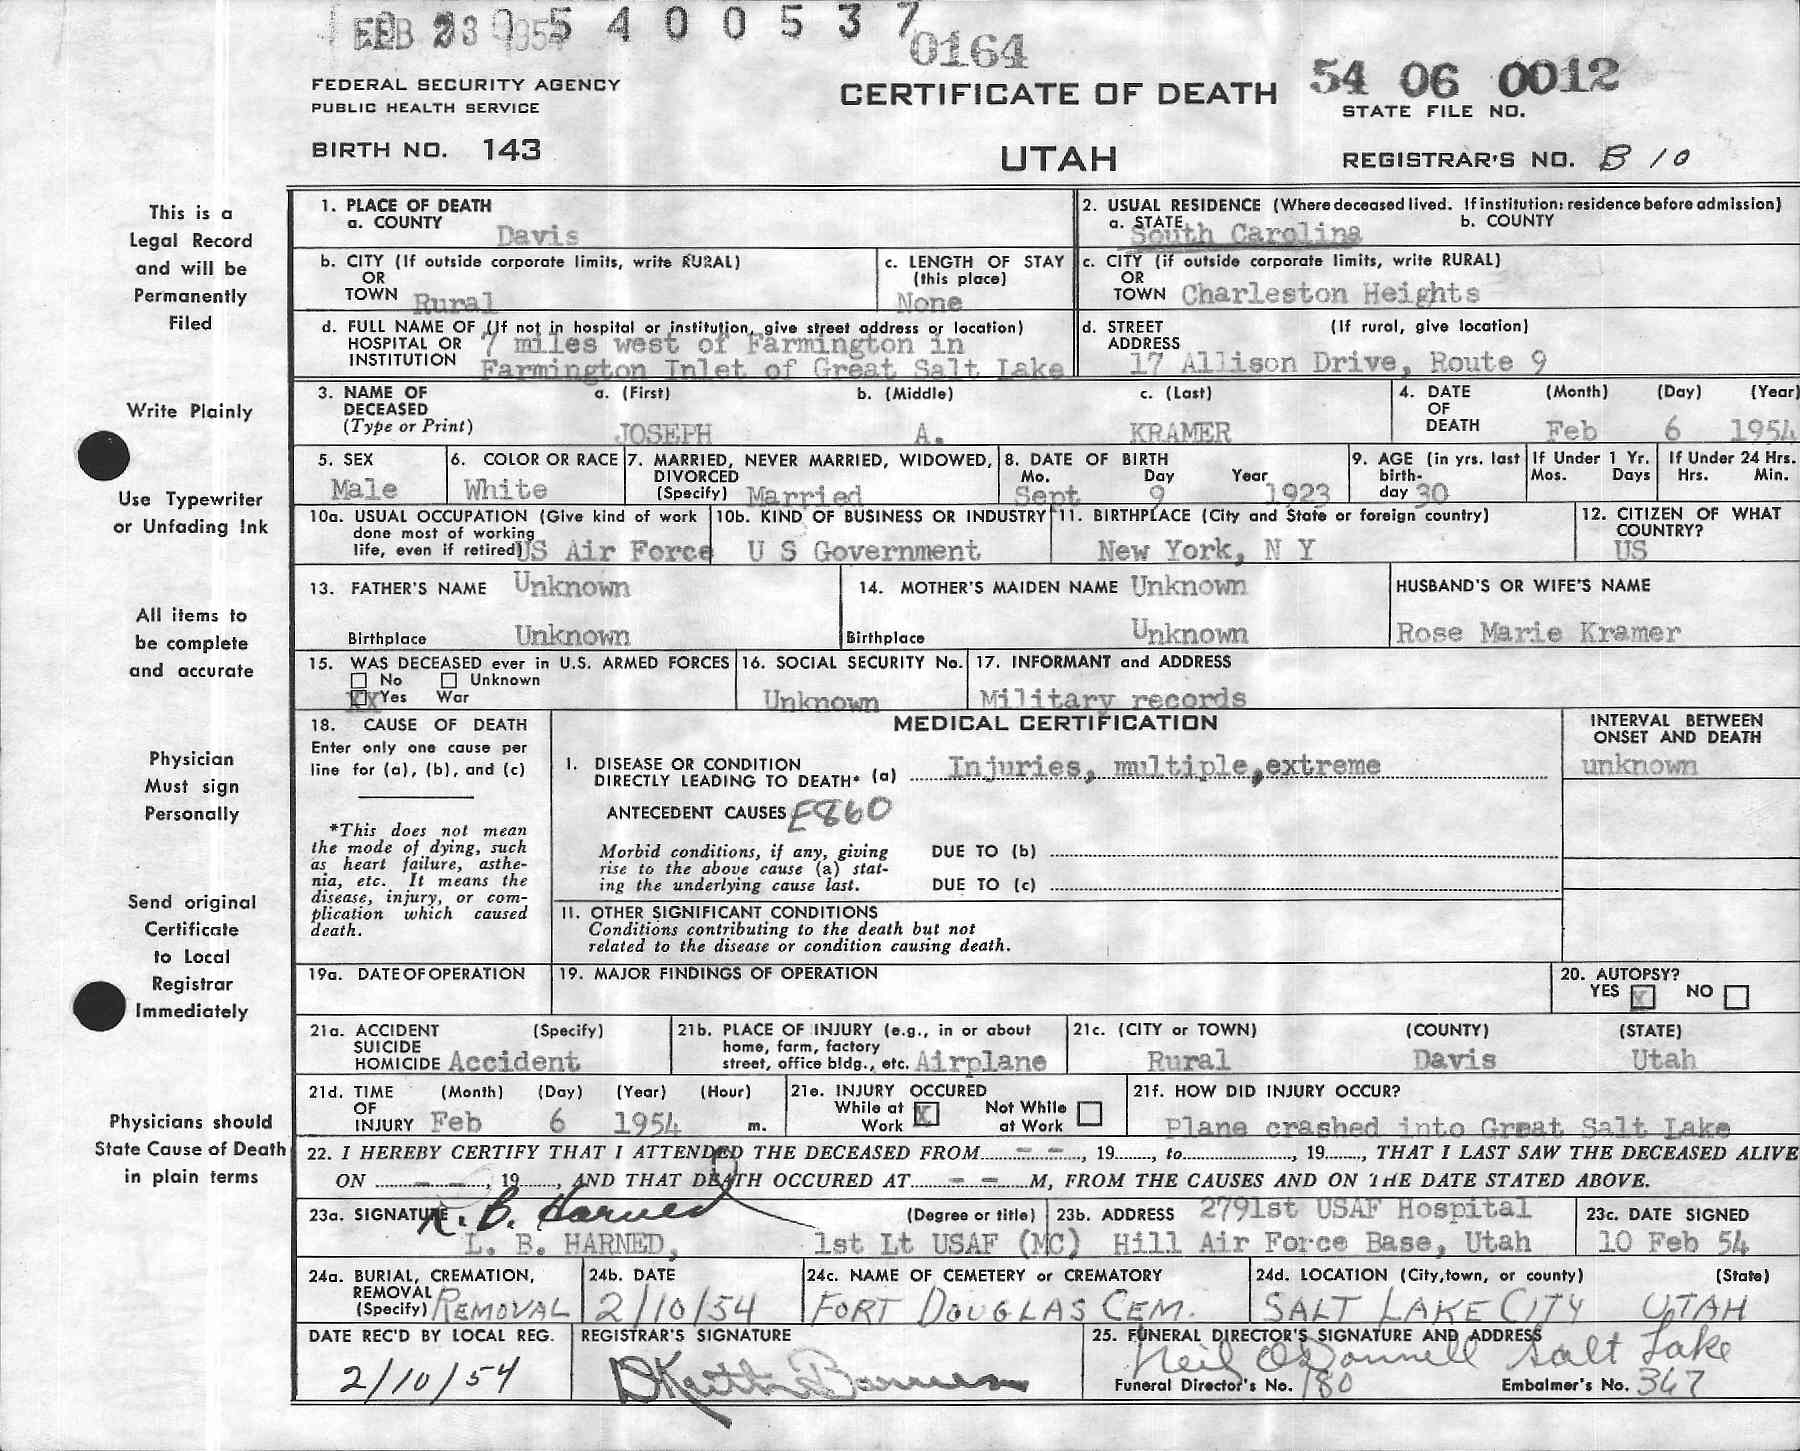 FEB 23 1954
5 4 0 0 5 3 7
0164
FEDERAL SECURITY AGENCY
PUBLIC HEALTH SERVICE
CERTIFICATE OF DEATH
54 06 0012
STATE FILE NO.
BIRTH NO. 143
UTAH
REGISTRAR'S NO. B 10
This is a
Legal Record
and will be
Permanently
Filed
Write Plainly
Use Typewriter
or Unfading Ink
All items to
be complete
and accurate
Physician
Must sign
Personally
Send original
Certificate
to Local
Registrar
Immediately
Physicians should
State Cause of Death
in plain terms
1. PLACE OF DEATH
a. COUNTY Davis
2. USUAL RESIDENCE (Where deceased lived. If institution: residence before admission)
a. STATE South Carolina b. COUNTY
b. CITY (If outside corporate limits, write RURAL)
OR
TOWN Rural
c. LENGTH OF STAY
(this place)
None
c. CITY (if outside corporate limits, write RURAL)
OR
TOWN Charleston Heights
d. FULL NAME OF (If not in hospital or institution, give street address or location)
HOSPITAL OR 7 miles west of Farmington in
INSTITUTION Farmington Inlet of Great Salt Lake
d. STREET (If rural, give location)
ADDRESS 17 Allison Drive, Route 9
3. NAME OF DECEASED (Type or Print)
a. (First) b. (Middle) c. (Last)
JOSEPH A. KRAMER
4. DATE OF DEATH (Month) (Day) (Year)
Feb 6 1954
5. SEX
Male
6. COLOR OR RACE
White
7. MARRIED, NEVER MARRIED, WIDOWED,
DIVORCED
(Specify) Married
8. DATE OF BIRTH
Mo. Day Year
Sept 9 1923
9. AGE (in yrs. last
birth-
day 30
If Under 1 Yr.
Mos. Days
If Under 24 Hrs.
Hrs. Min.
10a. USUAL OCCUPATION (Give kind of work
done most of working
life, even if retired) US Air Force
10b. KIND OF BUSINESS OR INDUSTRY
U S Government
11. BIRTHPLACE (City and State or foreign country)
New York, N Y
12. CITIZEN OF WHAT
COUNTRY?
US
13. FATHER'S NAME Unknown
Birthplace Unknown
14. MOTHER'S MAIDEN NAME Unknown
Birthplace Unknown
HUSBAND'S OR WIFE'S NAME
Rose Marie Kramer
15. WAS DECEASED ever in U.S. ARMED FORCES
No Unknown
XX Yes War
16. SOCIAL SECURITY No.
Unknown
17. INFORMANT and ADDRESS
Military records
18. CAUSE OF DEATH
Enter only one cause per
line for (a), (b), and (c)
*This does not mean
the mode of dying, such
as heart failure, asthe-
nia, etc. It means the
disease, injury, or com-
plication which caused
death.
MEDICAL CERTIFICATION
I. DISEASE OR CONDITION
DIRECTLY LEADING TO DEATH* (a) Injuries, multiple, extreme
ANTECEDENT CAUSES E860
Morbid conditions, if any, giving
rise to the above cause (a) stat-
ing the underlying cause last.
DUE TO (b)
DUE TO (c)
II. OTHER SIGNIFICANT CONDITIONS
Conditions contributing to the death but not
related to the disease or condition causing death.
INTERVAL BETWEEN
ONSET AND DEATH
unknown
19a. DATE OF OPERATION
19. MAJOR FINDINGS OF OPERATION
20. AUTOPSY?
YES X NO
21a. ACCIDENT (Specify)
SUICIDE
HOMICIDE Accident
21b. PLACE OF INJURY (e.g., in or about
home, farm, factory
street, office bldg., etc. Airplane
21c. (CITY or TOWN) (COUNTY) (STATE)
Rural Davis Utah
21d. TIME (Month) (Day) (Year) (Hour)
OF
INJURY Feb 6 1954 m.
21e. INJURY OCCURED
While at Work X Not While at Work
21f. HOW DID INJURY OCCUR?
Plane crashed into Great Salt Lake
22. I HEREBY CERTIFY THAT I ATTENDED THE DECEASED FROM -- , 19 , to , 19 , THAT I LAST SAW THE DECEASED ALIVE
ON -- , 19 , AND THAT DEATH OCCURED AT -- M, FROM THE CAUSES AND ON THE DATE STATED ABOVE.
23a. SIGNATURE L. B. Harned (Degree or title)
L. B. HARNED, 1st Lt USAF (MC)
23b. ADDRESS 2791st USAF Hospital
Hill Air Force Base, Utah
23c. DATE SIGNED
10 Feb 54
24a. BURIAL, CREMATION,
REMOVAL
(Specify) REMOVAL
24b. DATE
2/10/54
24c. NAME OF CEMETERY or CREMATORY
FORT DOUGLAS CEM.
24d. LOCATION (City, town, or county) (State)
SALT LAKE CITY UTAH
DATE REC'D BY LOCAL REG.
2/10/54
REGISTRAR'S SIGNATURE
25. FUNERAL DIRECTOR'S SIGNATURE AND ADDRESS
Neil O'Donnell Salt Lake
Funeral Director's No. 180 Embalmer's No. 367